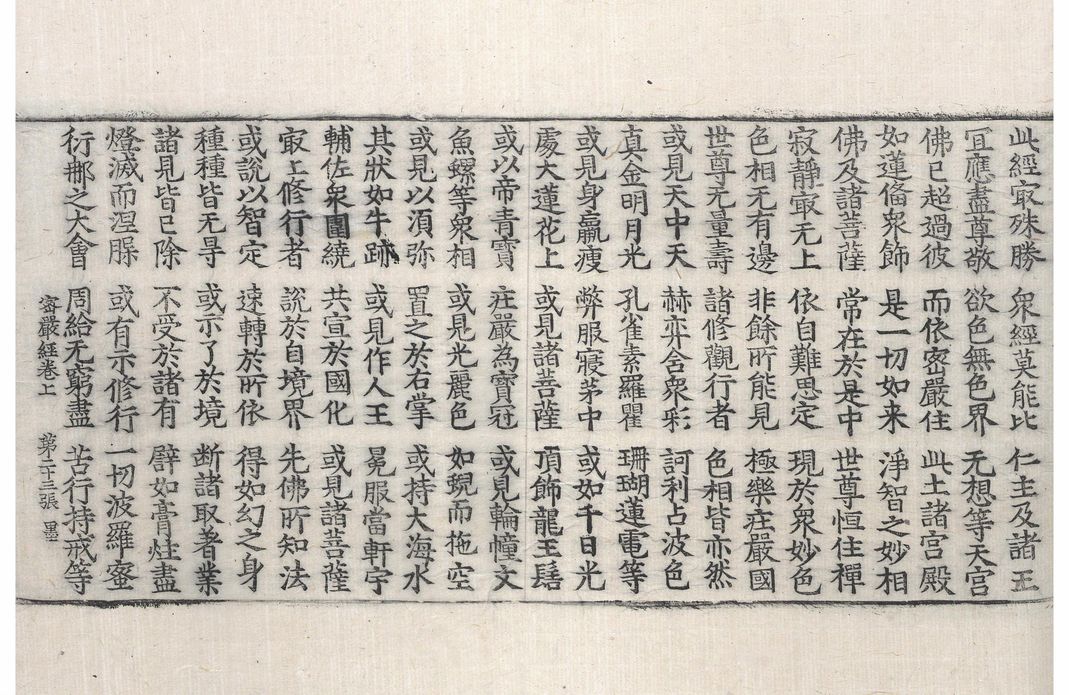 此經㝡殊勝 衆經莫能比 仁主及諸王
冝應盡尊敬 欲色無色界 无想等天宮
佛已超過彼 而依密嚴住 此土諸宮殿
如蓮俻衆飾 是一切如来 淨智之妙相
佛及諸菩薩 常在於是中 世尊恒住禪
寂靜㝡无上 依自難思定 現於衆妙色
色相无有邊 非餘所能見 極樂庄嚴國
世尊无量壽 諸修觀行者 色相皆亦然
或見天中天 赫弈舍衆彩 訶利占波色
真金明月光 孔雀素羅瞿 珊瑚蓮電等
或見身羸瘦 弊服寢茅中 或如千日光
處大蓮花上 或見諸菩薩 頂飾龍王髻
或以帝青寶 庄嚴為寶冠 或見輪幢文
魚螺等衆相 或見光麗色 如蜺而拖空
或見以湏弥 置之於右掌 或持大海水
其狀如牛跡 或見作人王 冕服當軒宇
輔佐衆圍繞 共宣於國化 或見諸菩薩
㝡上修行者 說於自境界 先佛所知法
或說以智定 速轉於所依 得如幻之身
種種皆无㝵 或示了於境 断諸取著業
諸見皆已除 不受於諸有 譬如膏炷盡
燈滅而涅槃 或有示修行 一切波羅蜜
衍那之大會 周給无窮盡 苦行持戒等
密嚴經卷上 第二十三張 墨